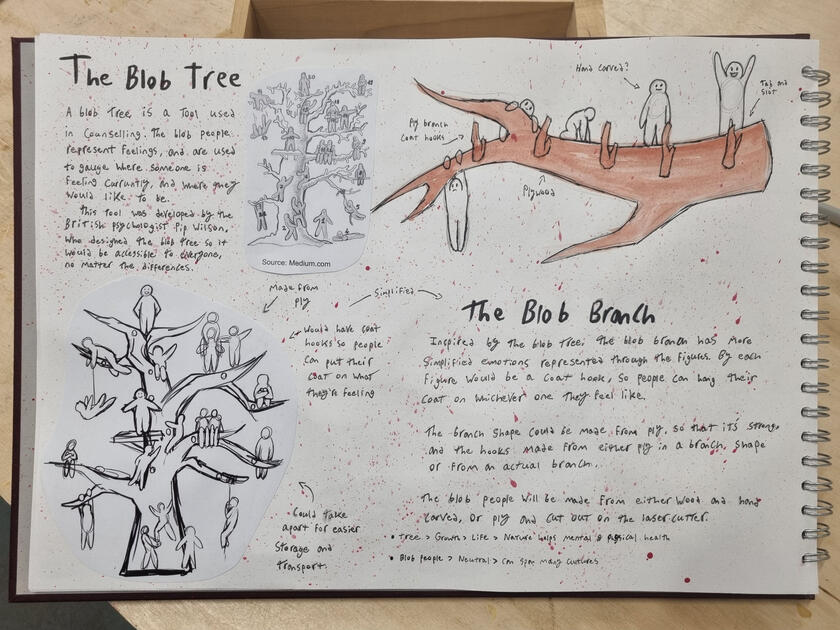 The Blob Tree
A blob tree, is a tool used
in counselling. The blob people
represent feelings, and are used
to gauge where someone is
feeling carruntly, and where they
would like to be.
This tool was developed by the
British psychologist Pip Wilson,
who designed the blob tree so it
would be accessible to everyone,
no matter the differences.
Source: Medium.com
Hand carved?
Tab and
slot
Ply branch
coat hooks
Plywood
Made from
ply
Simplified
Would have coat
hooks so people
can put their
coat on what
they're feeling
Could take
apart for easier
storage and
transport.
The Blob Branch
Inspired by the blob tree; the blob branch has more
simplified emotions represented through the figures. By each
figure would be a coat hook, so people can hang their
coat on whichever one they feel like.
The branch shape could be made from ply, so that it's strong,
and the hooks made from either ply in a branch, shape
or from an actual branch.
The blob people will be made from either wood and hand
carved, or ply and cut out on the laser cutter.
• Tree > Growth > Life > Nature helps mental & physical health
• Blob people > Neutral > can span many cultures